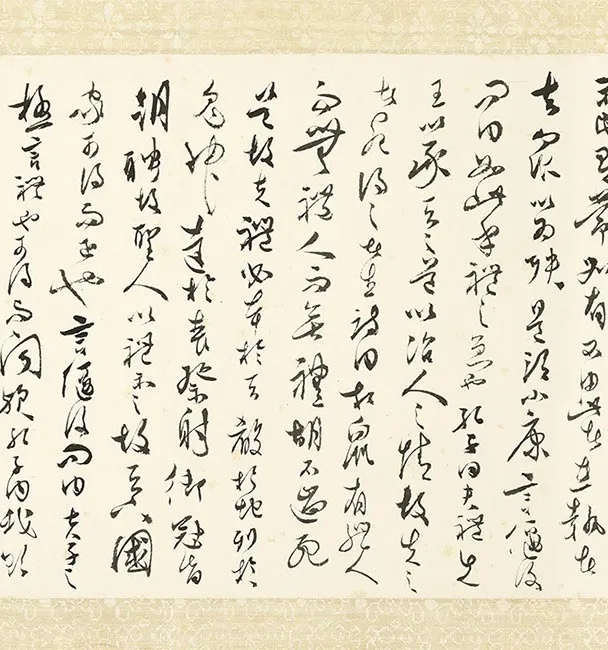 示民有常如有不由此者在執者
去眾以為殃是謂小康言偃復
問曰如此乎禮之急也孔子曰夫禮先
王以承天之道以治人之情故失之
者死得之者生詩曰相鼠有體人
而無禮人而無禮胡不遄死
是故夫禮必本於天殽於地列於
鬼神達於喪祭射御冠昏
朝聘故聖人以禮示之故天下國
家可得而正也言偃復問曰夫子之
極言禮也可得而聞歟孔子曰我欲